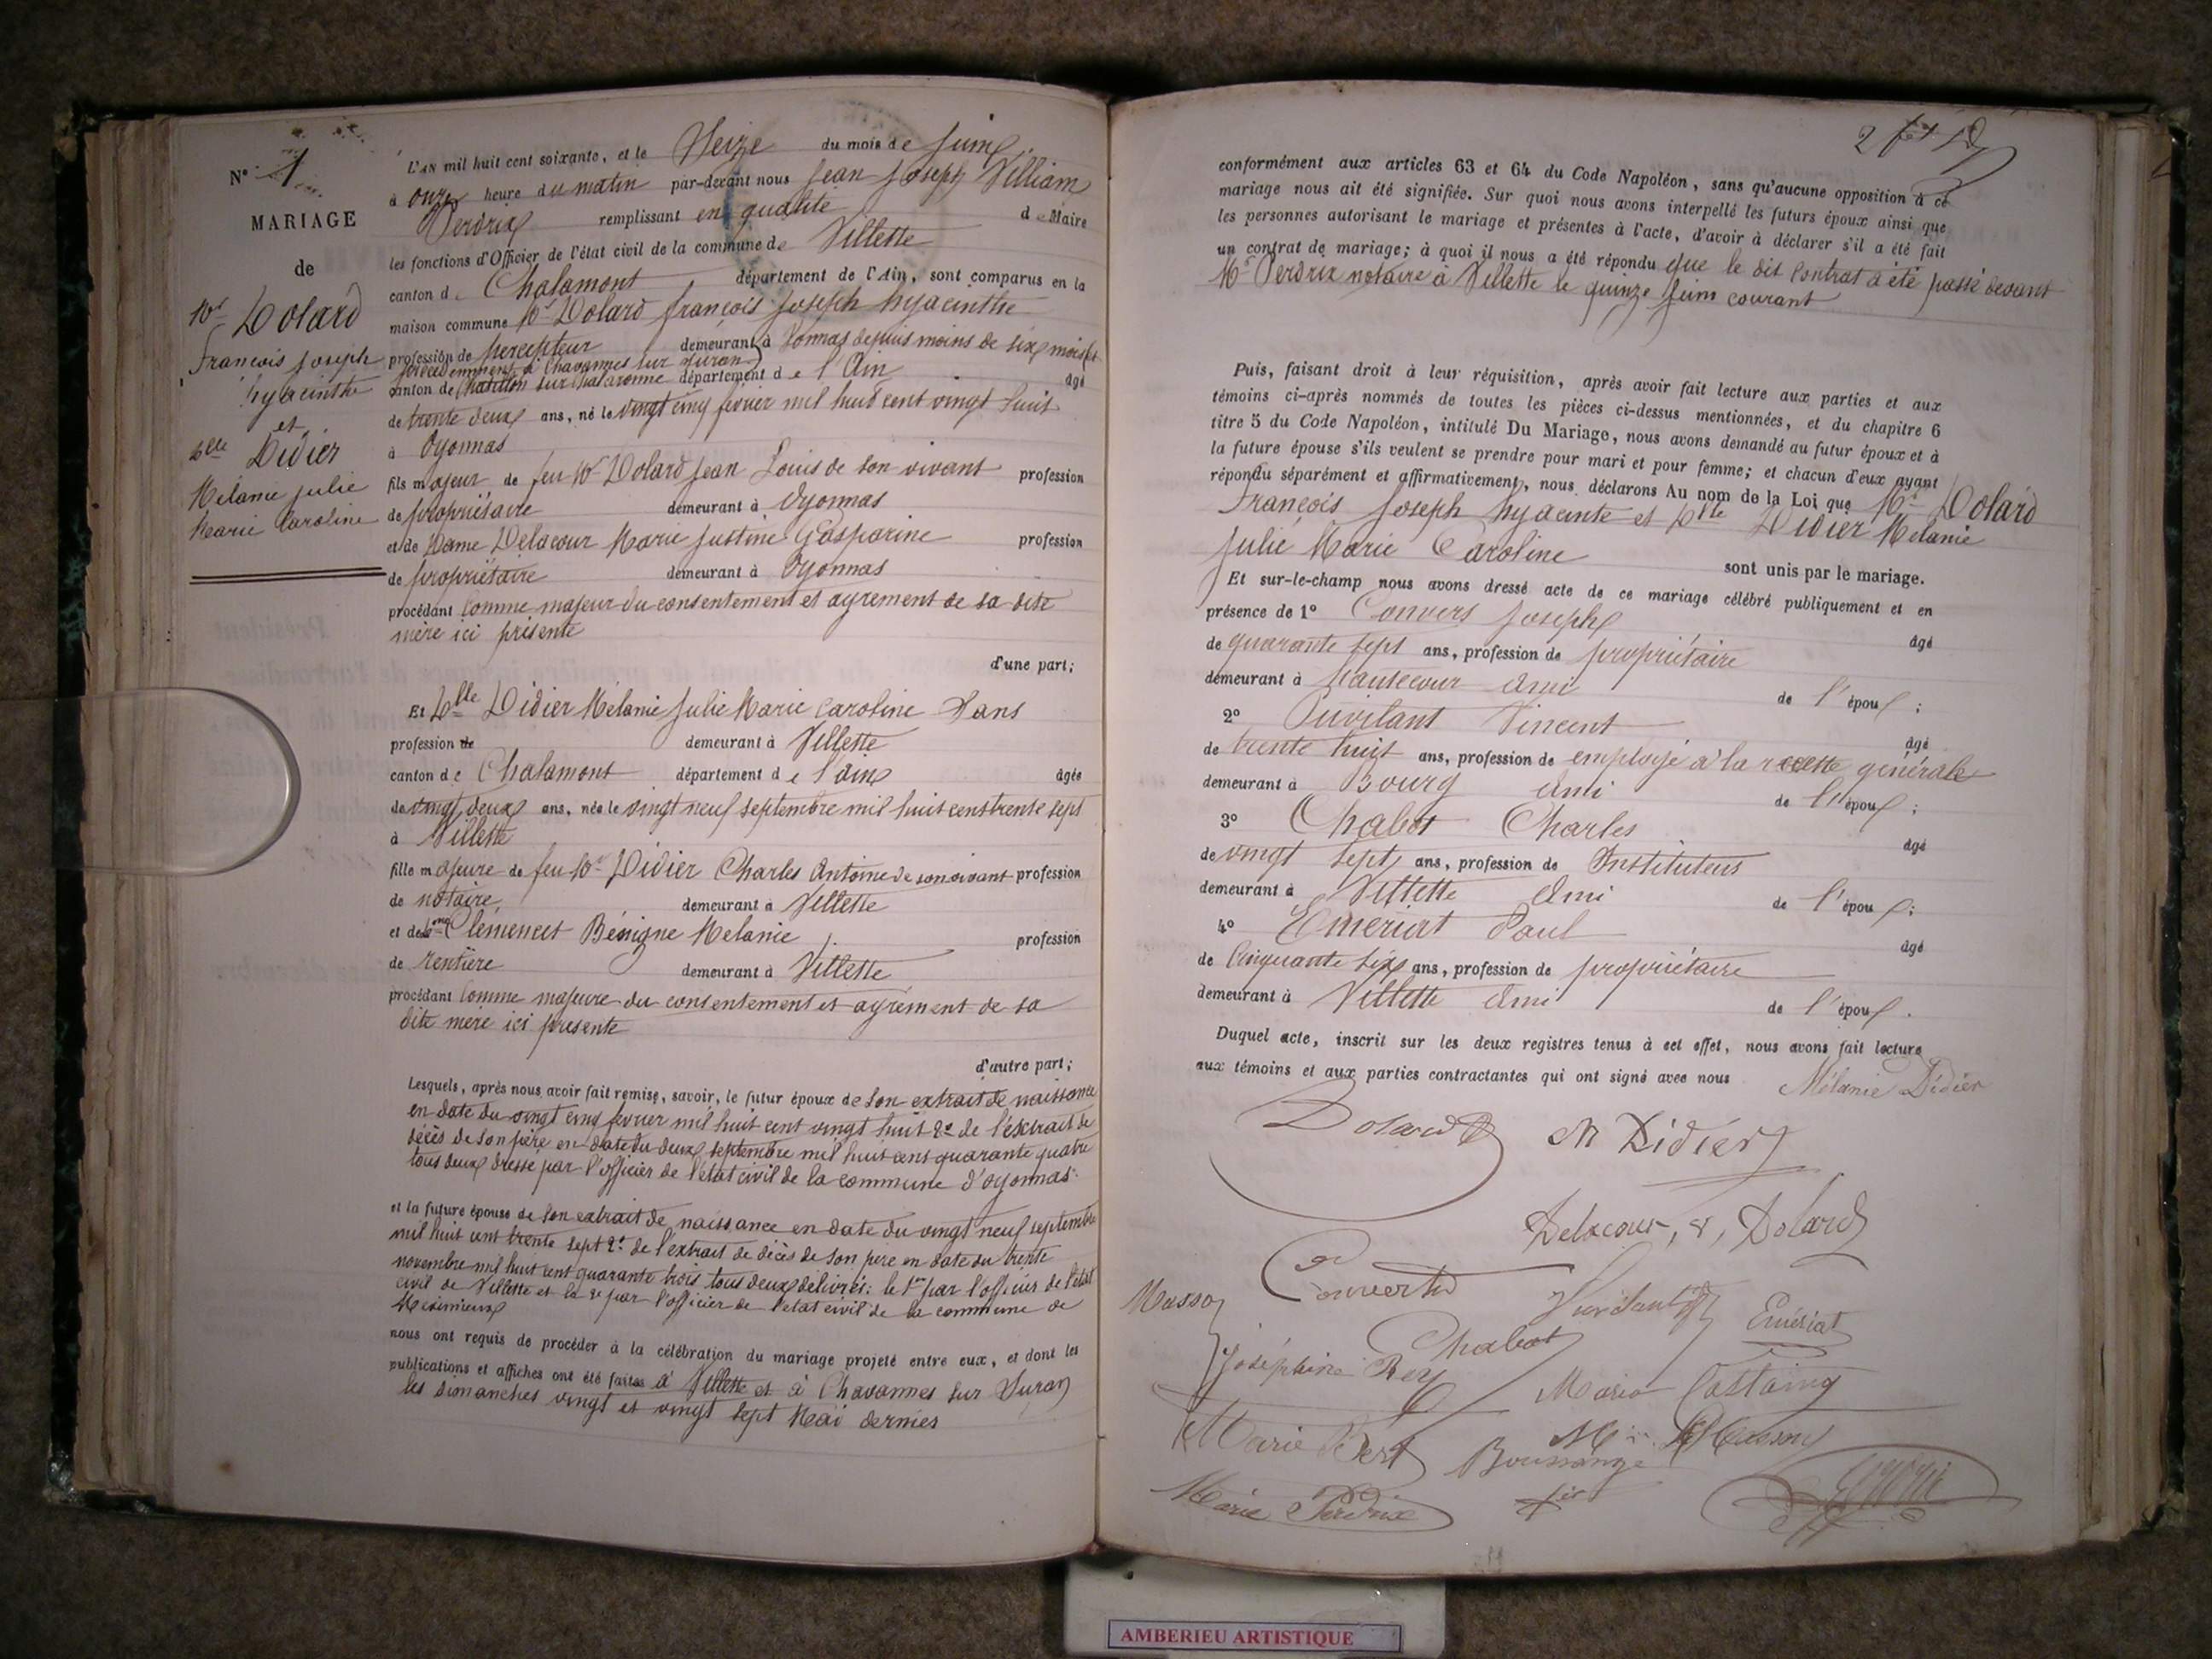 N° 1
MARIAGE
de
Mr Dolard
François Joseph
hyacinthe
et
Dlle Didier
Mélanie Julie
Marie Caroline
L'AN mil huit cent soixante, et le Seize du mois de Juin
à onze heure du matin par-devant nous Jean Joseph Villiam
Perdrix remplissant en qualité de Maire
les fonctions d'Officier de l'état civil de la commune de Villette
canton de Chalamont département de l'Ain, sont comparus en la
maison commune Mr Dolard françois Joseph hyacinthe
profession de percepteur demeurant à Vonnas depuis moins de six mois (et
précédemment à Chavannes sur Suran)
canton de Chatillon sur Chalaronne département de l'Ain âgé
de trente deux ans, né le vingt cinq fevrier mil huit cent vingt huit
à Oyonnas
fils majeur de feu Mr Dolard Jean Louis de son vivant profession
de propriétaire demeurant à Oyonnas
et de Dame Delacour Marie Justine Gasparine profession
de propriétaire demeurant à Oyonnas
procédant Comme majeur du consentement et agrement de sa dite
mère ici présente
d'une part;
Et Dlle Didier Mélanie Julie Marie Caroline Sans
profession de demeurant à Villette
canton de Chalamont département de l'ain âgée
de vingt deux ans, née le vingt neuf septembre mil huit cent trente sept
à Villette
fille majeure de feu Mr Didier Charles Antoine de son vivant profession
de notaire demeurant à Villette
et de Dme Clémencet Bénigne Melanie profession
de rentière demeurant à Villette
procédant Comme majeure du consentement et agrément de sa
dite mère ici presente
d'autre part;
Lesquels, après nous avoir fait remise, savoir, le futur époux de Son extrait de naissance
en date du vingt cinq fevrier mil huit cent vingt huit 2° de l'extrait de
décès de son père en date du deux septembre mil huit cent quarante quatre
tous deux dressé par l'officier de l'état civil de la commune d'oyonnas
et la future épouse de Son extrait de naissance en date du vingt neuf septembre
mil huit cent trente sept 2° de l'extrait de décès de son pere en date du trente
novembre mil huit cent quarante trois tous deux délivrés: le 1er par l'officier de l'état
civil de Villette et la 2e par l'officier de l'etat civil de la commune de
Meximieux
nous ont requis de procéder à la célébration du mariage projeté entre eux, et dont les
publications et affiches ont été faites à Villette et à Chavannes sur Suran
les dimanches vingt et vingt sept Mai dernier
2
conformément aux articles 63 et 64 du Code Napoléon, sans qu'aucune opposition à ce
mariage nous ait été signifiée. Sur quoi nous avons interpellé les futurs époux ainsi que
les personnes autorisant le mariage et présentes à l'acte, d'avoir à déclarer s'il a été fait
un contrat de mariage; à quoi il nous a été répondu que le dit Contrat a été passé devant
Me Perdrix notaire à Villette le quinze Juin courant
Puis, faisant droit à leur réquisition, après avoir fait lecture aux parties et aux
témoins ci-après nommés de toutes les pièces ci-dessus mentionnées, et du chapitre 6
titre 5 du Code Napoléon, intitulé Du Mariage, nous avons demandé au futur époux et à
la future épouse s'ils veulent se prendre pour mari et pour femme; et chacun d'eux ayant
répondu séparément et affirmativement, nous déclarons Au nom de la Loi que Mr Dolard
François Joseph hyacinte et Dlle Didier Mélanie
Julie Marie Caroline sont unis par le mariage.
Et sur-le-champ nous avons dressé acte de ce mariage célébré publiquement et en
présence de 1° Convers Joseph âgé
de quarante sept ans, profession de propriétaire
demeurant à hautecour Ami de l'époux;
2° Vincent âgé
de trente huit ans, profession de employé à la recette générale
demeurant à Bourg Ami de l'époux;
3° Chabot Charles âgé
de vingt sept ans, profession de Instituteur
demeurant à Villette Ami de l'époux;
4° Emeriat Paul âgé
de Cinquante six ans, profession de propriétaire
demeurant à Villette Ami de l'époux.
Duquel acte, inscrit sur les deux registres tenus à cet effet, nous avons fait lecture
aux témoins et aux parties contractantes qui ont signé avec nous Mélanie Didier
Dolard M Didier
Delacour, v, Dolard
Convert
Masson Emériat
Chabot
Joséphine Rey Maria Castaing
Marie Bert Boussange Masson
Marie Perdrix
AMBERIEU ARTISTIQUE